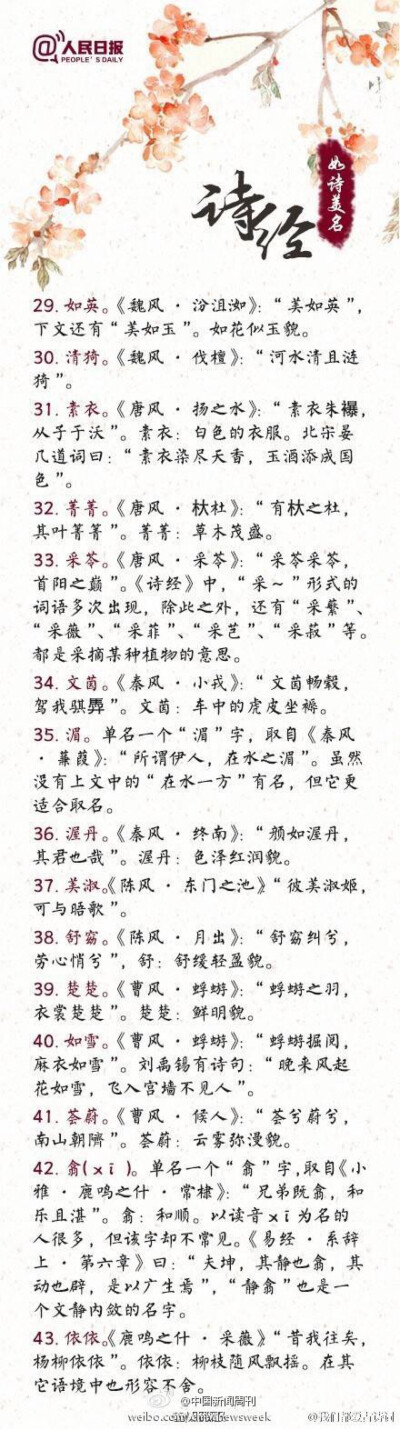 @人民日报
PEOPLE'S DAILY
诗经
如诗美名
29. 如英。《魏风 · 汾沮洳》：“美如英”，
下文还有“美如玉”。如花似玉貌。
30. 清猗。《魏风 · 伐檀》：“河水清且涟
猗”。
31. 素衣。《唐风 · 扬之水》：“素衣朱襮，
从子于沃”。素衣：白色的衣服。北宋晏
几道词曰：“素衣染尽天香，玉酒添成国
色”。
32. 菁菁。《唐风 · 杕杜》：“有杕之杜，
其叶菁菁”。菁菁：草木茂盛。
33. 采苓。《唐风 · 采苓》：“采苓采苓，
首阳之巅”。《诗经》中，“采～”形式的
词语多次出现，除此之外，还有“采蘩”、
“采薇”、“采菲”、“采芑”、“采菽”等。
都是采摘某种植物的意思。
34. 文茵。《秦风 · 小戎》：“文茵畅毂，
驾我骐馵”。文茵：车中的虎皮坐褥。
35. 湄。单名一个“湄”字，取自《秦风
· 蒹葭》：“所谓伊人，在水之湄”。虽然
没有上文中的“在水一方”有名，但它更
适合取名。
36. 渥丹。《秦风 · 终南》：“颜如渥丹，
其君也哉”。渥丹：色泽红润貌。
37. 美淑。《陈风 · 东门之池》“彼美淑姬，
可与晤歌”。
38. 舒窈。《陈风 · 月出》：“舒窈纠兮，
劳心悄兮”，舒：舒缓轻盈貌。
39. 楚楚。《曹风 · 蜉蝣》：“蜉蝣之羽，
衣裳楚楚”。楚楚：鲜明貌。
40. 如雪。《曹风 · 蜉蝣》：“蜉蝣掘阅，
麻衣如雪”。刘禹锡有诗句：“晚来风起
花如雪，飞入宫墙不见人”。
41. 荟蔚。《曹风 · 候人》：“荟兮蔚兮，
南山朝隮”。荟蔚：云雾弥漫貌。
42. 翕(xī)。单名一个“翕”字，取自《小
雅 · 鹿鸣之什 · 常棣》：“兄弟既翕，和
乐且湛”。翕：和顺。以读音xī为名的
人很多，但该字却不常见。《易经 · 系辞
上 · 第六章》曰：“夫坤，其静也翕，其
动也辟，是以广生焉”，“静翕”也是一
个文静内敛的名字。
43. 依依。《鹿鸣之什 · 采薇》“昔我往矣，
杨柳依依”。依依：柳枝随风飘摇。在其
它语境中也形容不舍。
@中国新闻周刊